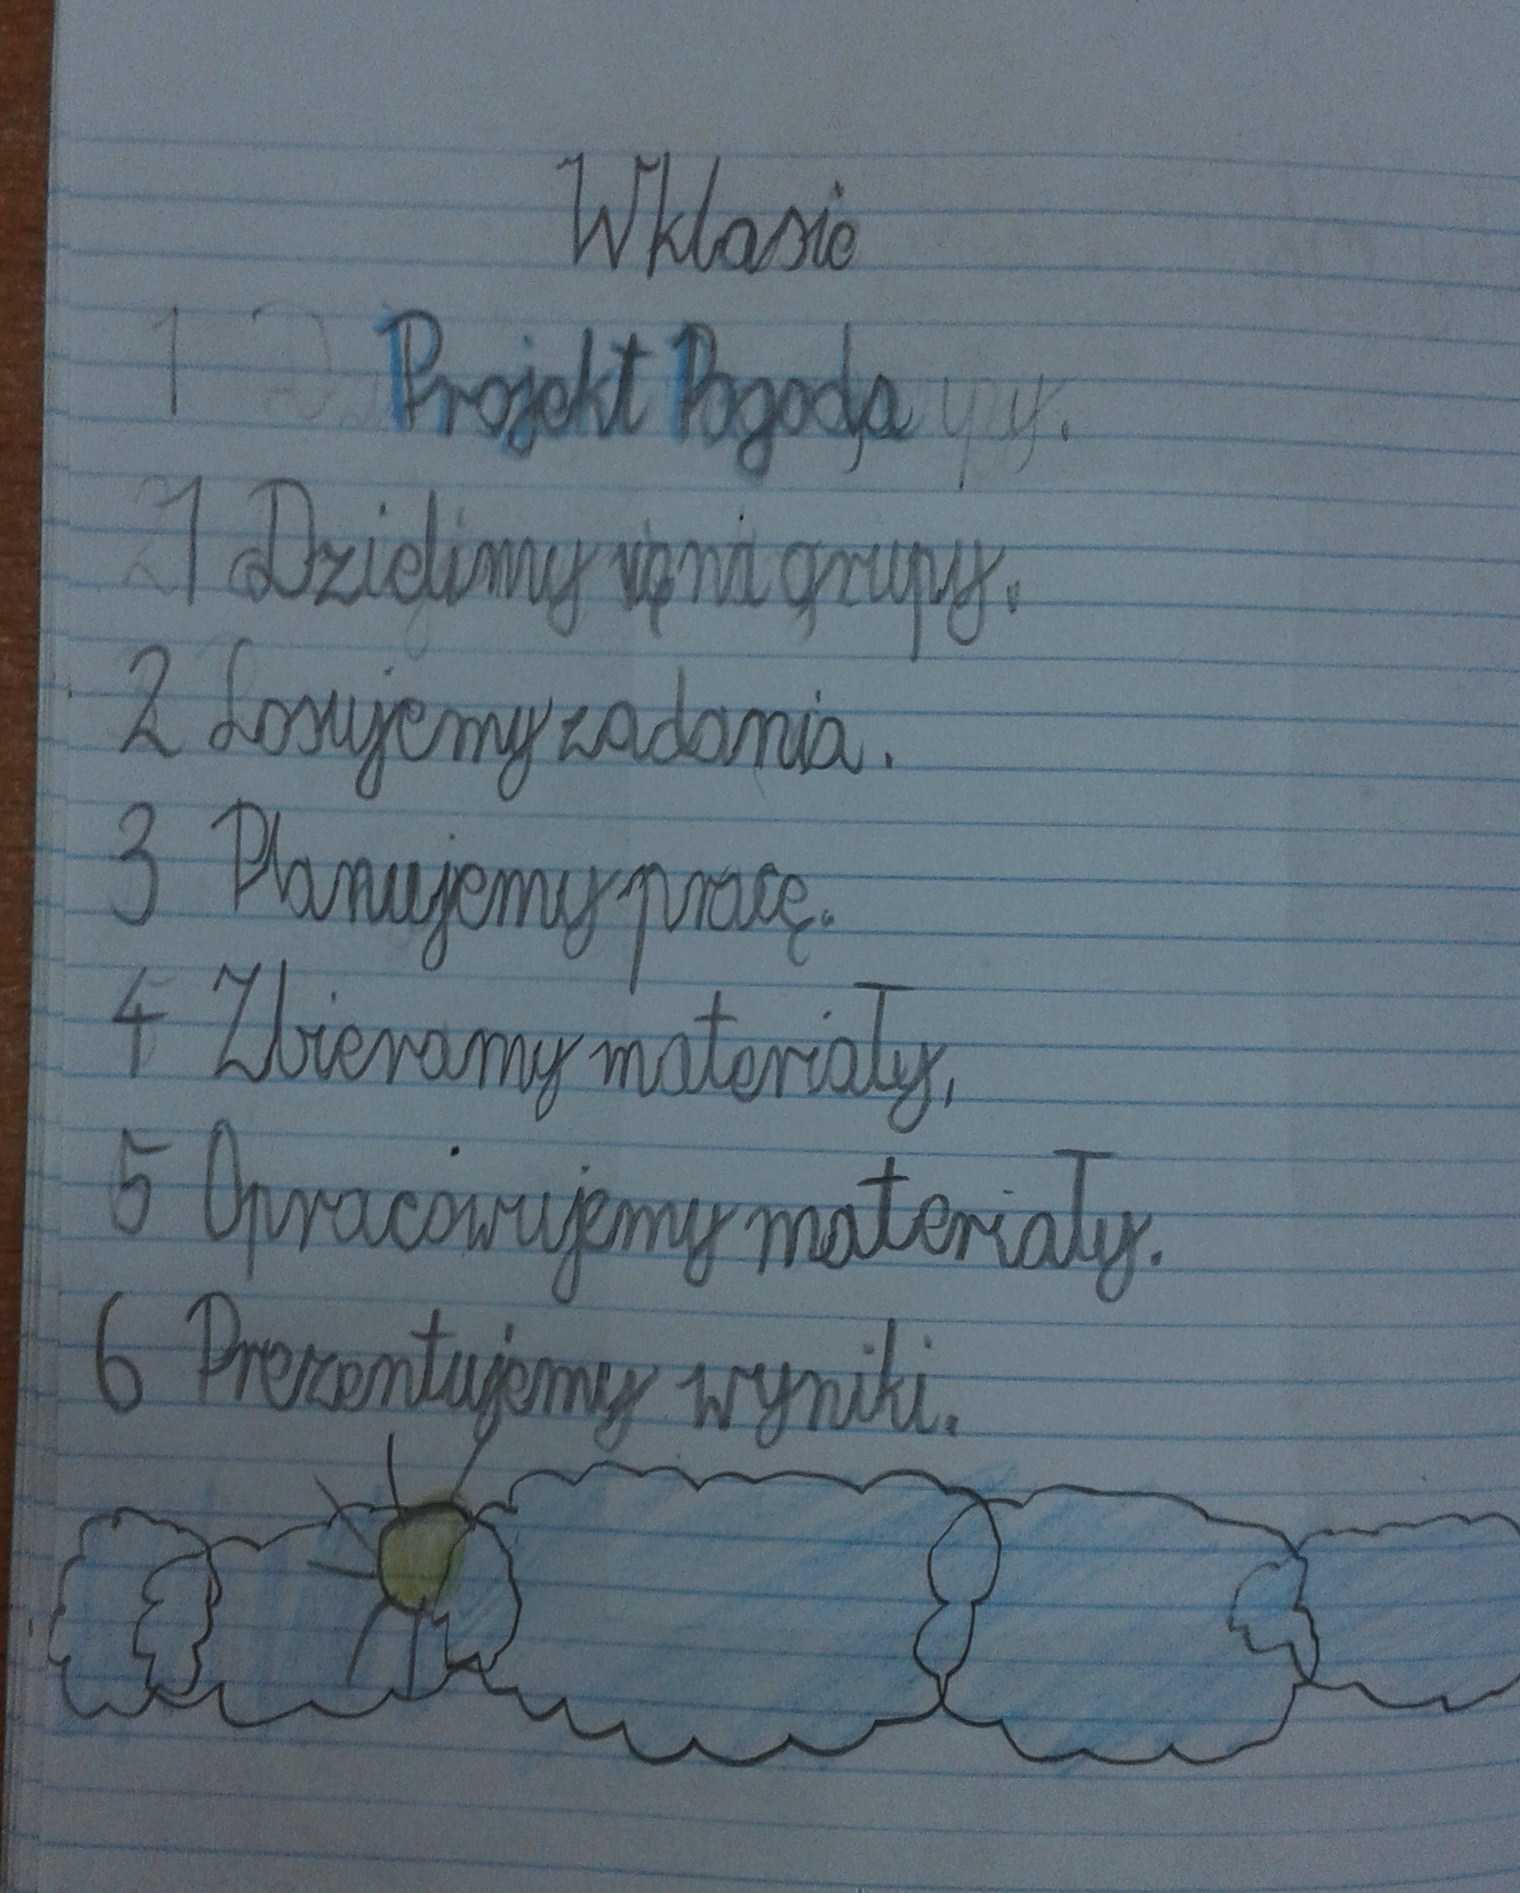 W klasie
Projekt Pogoda
1 Dzielimy się na grupy.
2 Losujemy zadania.
3 Planujemy pracę.
4 Zbieramy materiały,
5 Opracowujemy materiały.
6 Prezentujemy wyniki.